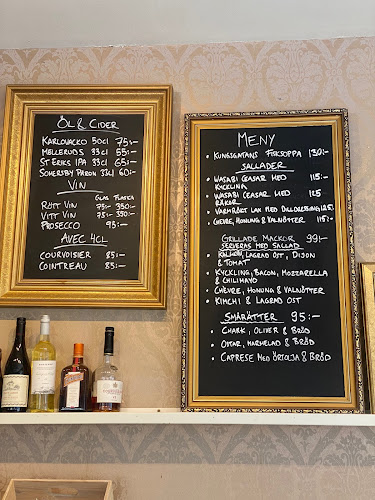 ÖL & CIDER
KARLOVACKO 50CL 75:-
MELLERUDS 33CL 55:-
ST ERIKS IPA 33CL 65:-
SOMERSBY PÄRON 33CL 60:-
VIN
GLAS FLASKA
RÖTT VIN 75:- 350:-
VITT VIN 75:- 350:-
PROSECCO 95:-
AVEC 4CL
COURVOISIER 85:-
COINTREAU 85:-
MENY
KUNGSGATANS FISKSOPPA 130:-
SALLADER
WASABI CEASAR MED 115:-
KYCKLING
WASABI CEASAR MED 125
RÄKOR
VARMRÖKT LAX MED DILLDRESSING 125:-
CHEVRE, HONUNG & VALNÖTTER 115:-
GRILLADE MACKOR 99:-
SERVERAS MED SALLAD
LAGRAD OST, DIJON
& TOMAT
KYCKLING, BACON, MOZZARELLA
& CHILIMAYO
CHEVRE, HONUNG & VALNÖTTER
KIMCHI & LAGRAD OST
SMÅRÄTTER 95:-
CHARK, OLIVER & BRÖD
OSTAR, MARMELAD & BRÖD
CAPRESE MED ÖRTOLJA & BRÖD